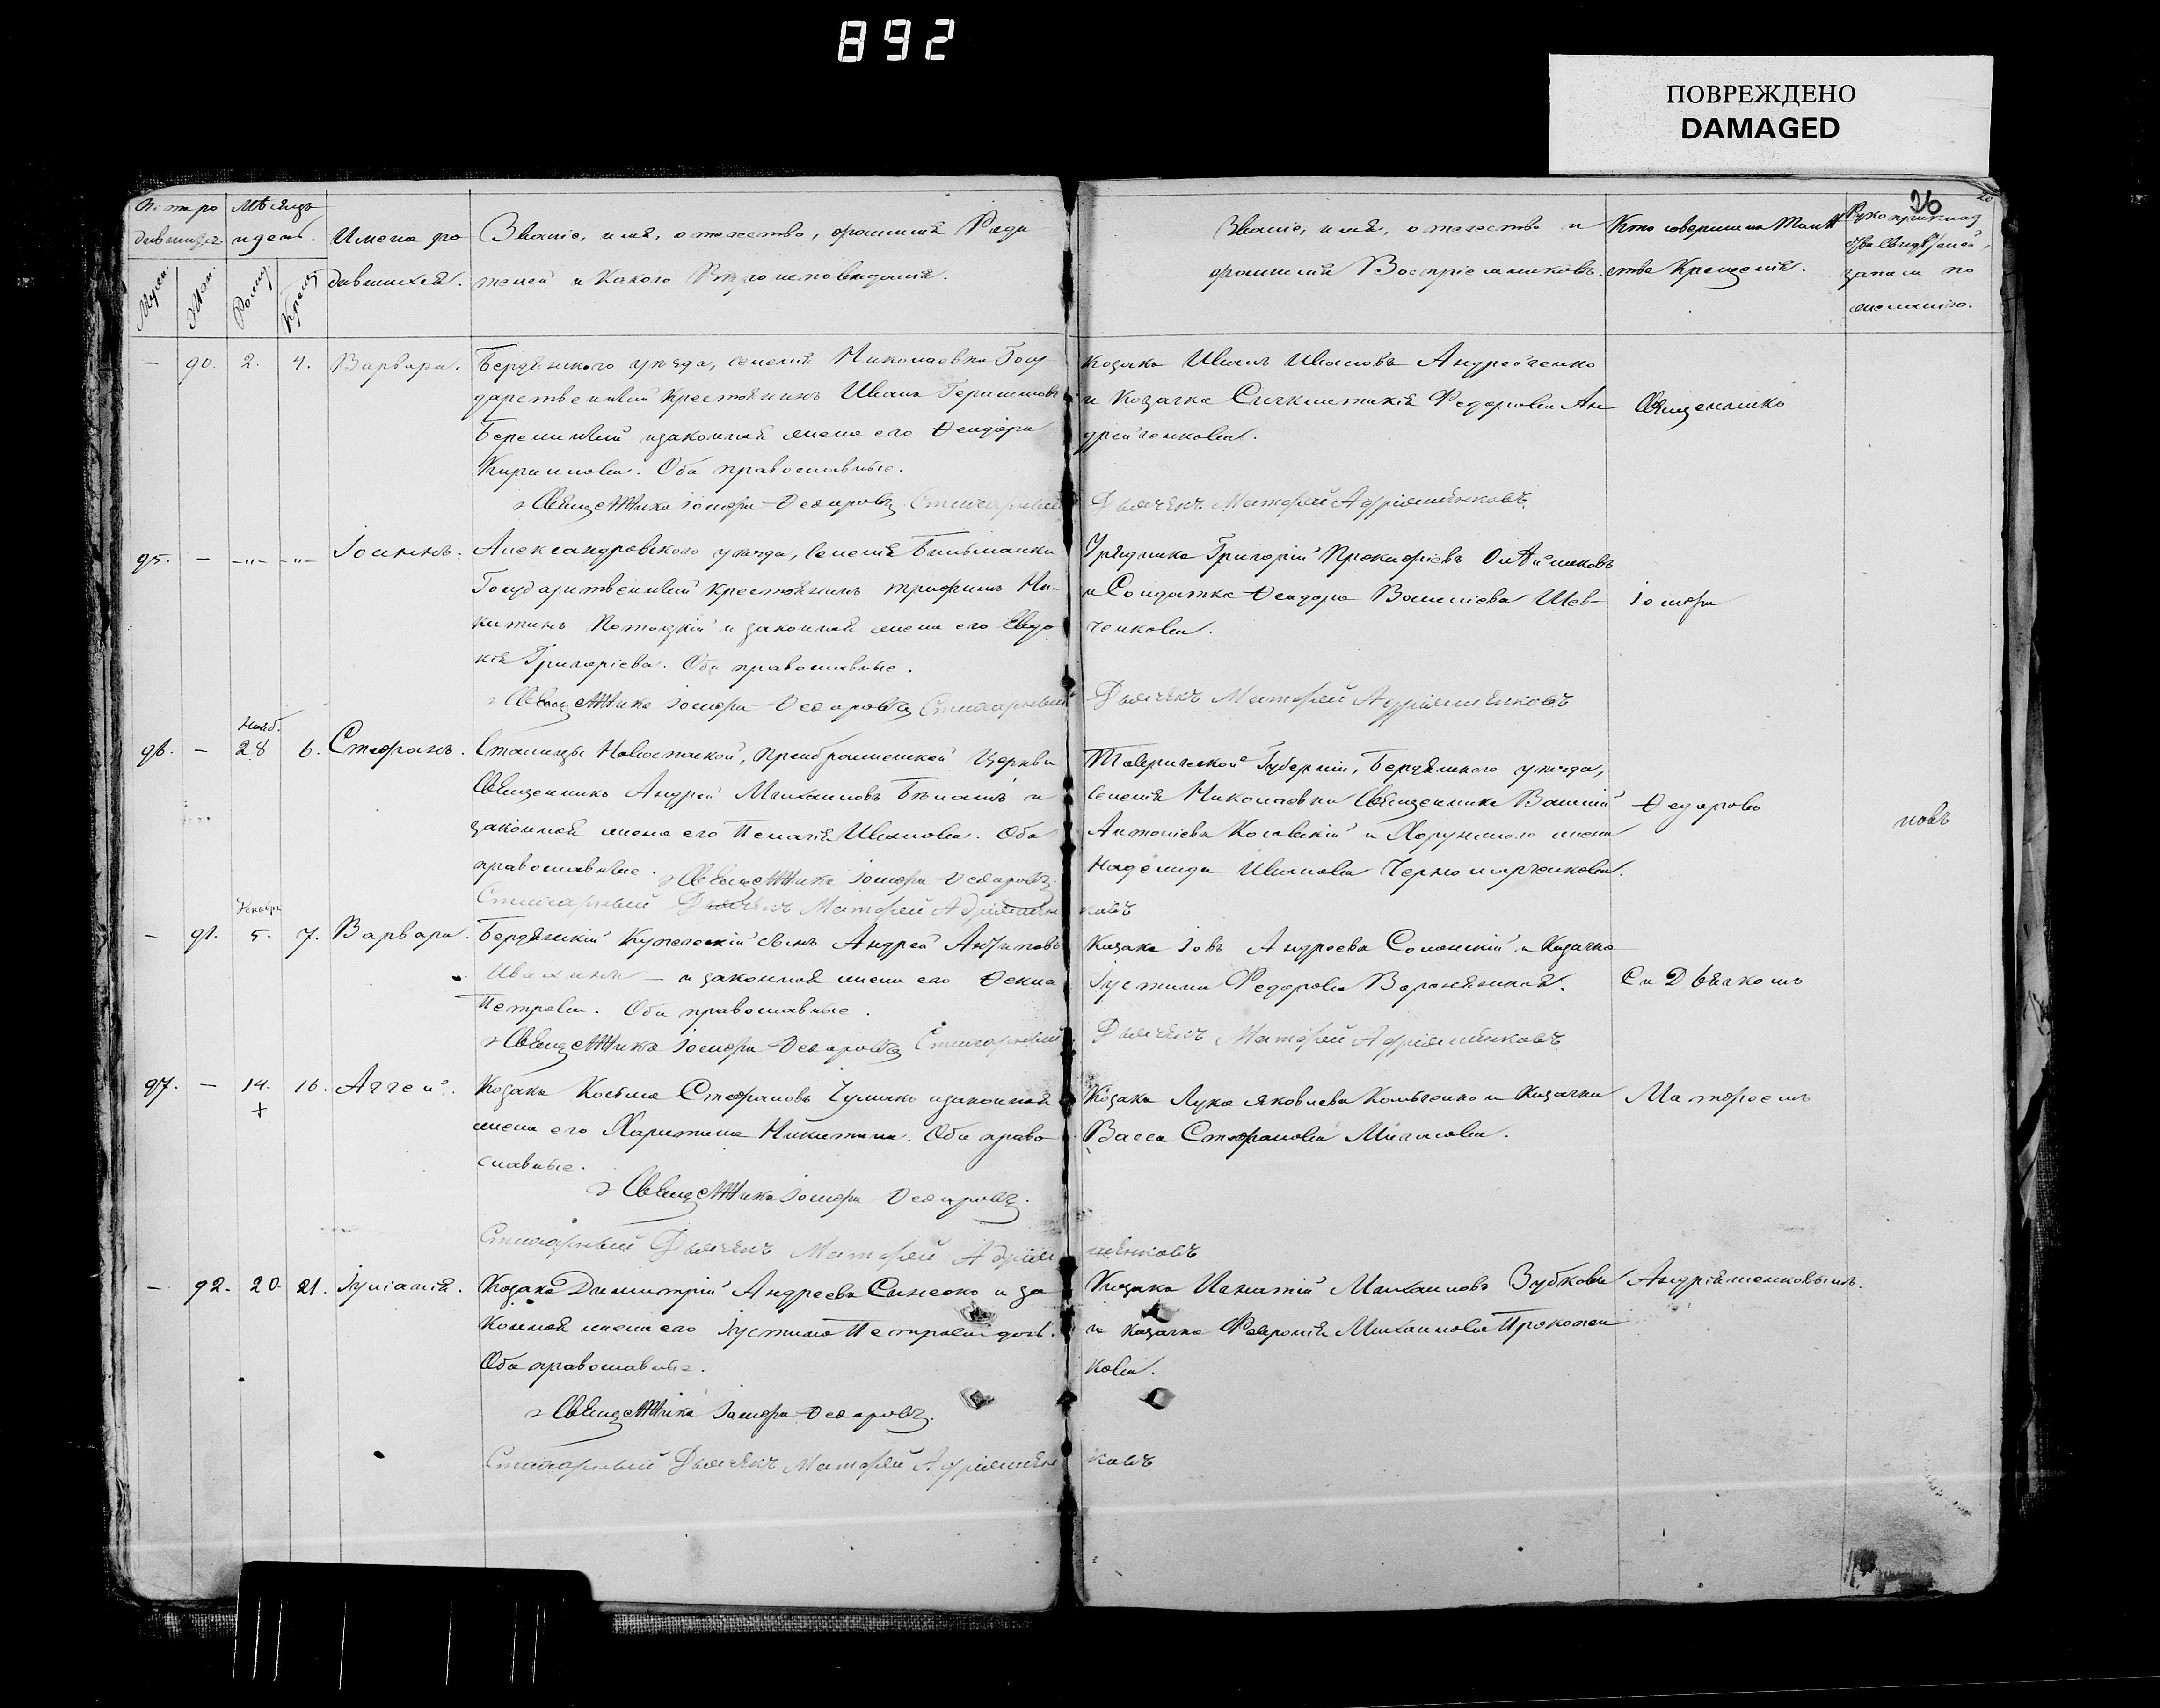 892
ПОВРЕЖДЕНО
DAMAGED
26
Мѣсяцъ
и день.
Имена ро
дившихся.
Званіе, имя, отечество, фамилія Роди
телей и Какого Вѣроисповеданія.
Званіе, имя, отечество и
фамилія Воспріемниковъ.
Кто совершалъ Таин
ство Крещенія.
Рукоприклад
ство свидѣтелей
записи по
желанію.
— 90. 2. 4. Варвара.
Бердянскаго уѣзда, селенія Николаевки Госу
дарственный Крестьянинъ Иванъ Герасимовъ
и законная жена его Ѳеодора
Кирилова. Оба православные.
Священникъ Іосифъ Ѳедоровъ Стихарный
Козакъ Иванъ Ивановъ Андрейченко
и Козачка Синклитикія Федорова Ан
дрейченкова.
Дьячекъ Матфей Андріяшенковъ
Священникъ
95. — -"- -"- Іоаннъ.
Александровскаго уѣзда, Селенія Бильманки
Государственный крестьянинъ Трифонъ Ни-
китинъ Потоцкій и законная жена его Евдо
кія Григоріева. Оба православные.
Священникъ Іосифъ Ѳедоровъ Стихарный
Урядникъ Григорій Прокофіевъ
и Солдатка Ѳеодора Василіева Шев-
ченкова.
Дьячекъ Матфей Андріяшенковъ
Іосифъ
Нояб.
96. — 28 6. Стефанъ.
Станицы Новоспаской, Преображенской Церкви
Священникъ Андрей Михаиловъ и
законная жена его Пелагія Иванова. Оба
православные. Священникъ Іосифъ Ѳедоровъ
Стихарный Дьячекъ Матфей Андріяшен
ковъ
Таврической Губерніи, Бердянскаго уѣзда,
Селенія Николаевки Священникъ Василій
Антоніевъ Косовскій и Хорунжаго жена
Надежда Иванова Черномарченкова.
Ѳедоровъ
новъ
Декабря
— 91. 5. 7. Варвара.
Бердянскій Купеческій сынъ Андрей Антиповъ
и законная жена его Ѳекла
Петрова. Оба православные.
Священникъ Іосифъ Ѳедоровъ Стихарный
Козакъ Іовъ Андреевъ Солонскій и Козачка
Іустина Федорова
Дьячекъ Матфей Андріяшенковъ
Съ Дьячкомъ
97. — 14. 16. Аггей.
+
Козакъ Косьма Стефановъ Чумакъ и законная
жена его Харитина Никитина. Оба право
славные.
Священникъ Іосифъ Ѳедоровъ.
Стихарный Дьячекъ Матфей Андрія
шенковъ
Козакъ Лука Яковлевъ Компаченко и Козачка
Васса Стефанова
Матфеемъ
— 92. 20. 21. Іуліанія.
Козакъ Димитрій Андреевъ Синеоко и за
конная жена его Іустина Петрова дочь.
Оба православные.
Священникъ Іосифъ Ѳедоровъ.
Стихарный Дьячекъ Матфей Андріяшен
ковъ
Козакъ Игнатій Михаиловъ Зубковъ
и козачка Февронія Михаилова Прокопен
кова.
Андріяшенковымъ.